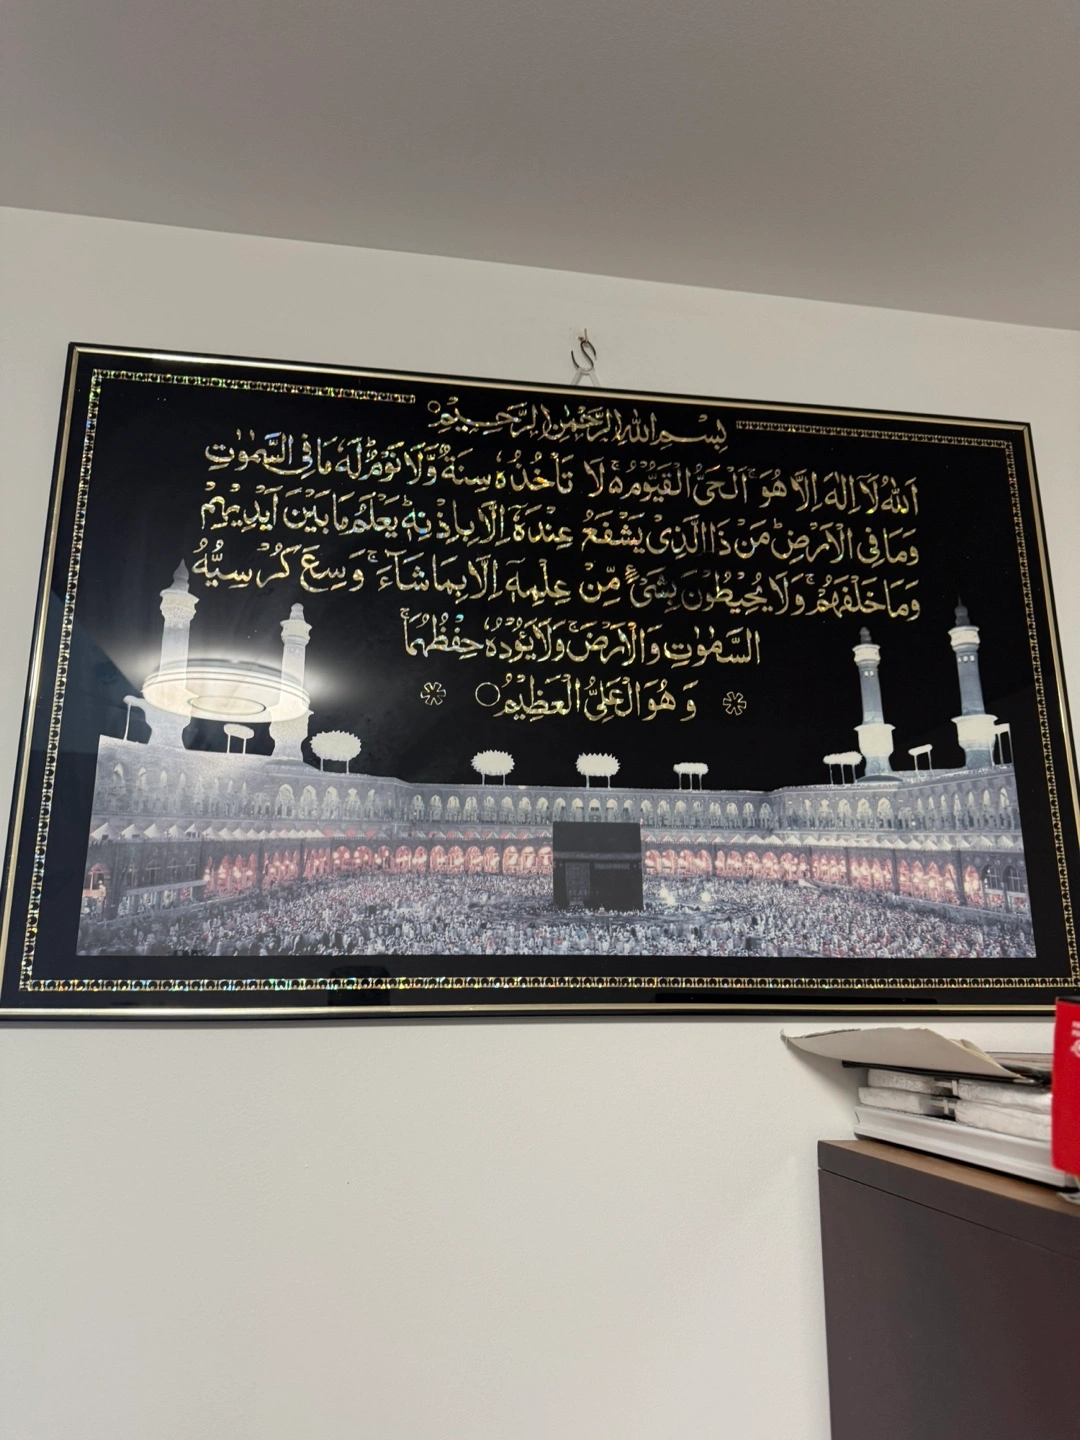 بِسْمِ اللهِ الرَّحْمٰنِ الرَّحِيْمِ
اَللهُ لَاۤ اِلٰهَ اِلَّا هُوَ ۚ اَلْحَيُّ الْقَيُّوْمُ ۚ لَا تَاْخُذُهٗ سِنَةٌ وَّلَا نَوْمٌ ؕ لَهٗ مَا فِی السَّمٰوٰتِ
وَمَا فِی الْاَرْضِ ؕ مَنْ ذَا الَّذِیْ يَشْفَعُ عِنْدَهٗۤ اِلَّا بِاِذْنِهٖ ؕ يَعْلَمُ مَا بَيْنَ اَيْدِيْهِمْ
وَمَا خَلْفَهُمْ ۚ وَلَا يُحِيْطُوْنَ بِشَیْءٍ مِّنْ عِلْمِهٖۤ اِلَّا بِمَا شَآءَ ۚ وَسِعَ كُرْسِيُّهُ
السَّمٰوٰتِ وَالْاَرْضَ ۚ وَلَا يَئُوْدُهٗ حِفْظُهُمَا ۚ
وَهُوَ الْعَلِیُّ الْعَظِيْمُ